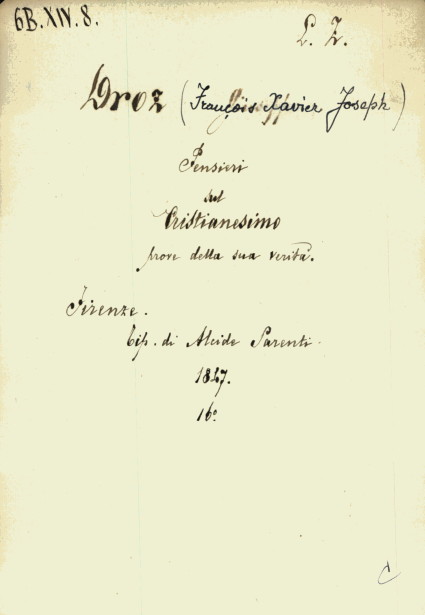 6B.XIV.8.
L. Z.
Droz (François Xavier Joseph)
Pensieri
sul
Cristianesimo
prove della sua verità.
Firenze.
Tip. di Alcide Parenti.
1847.
16°
C